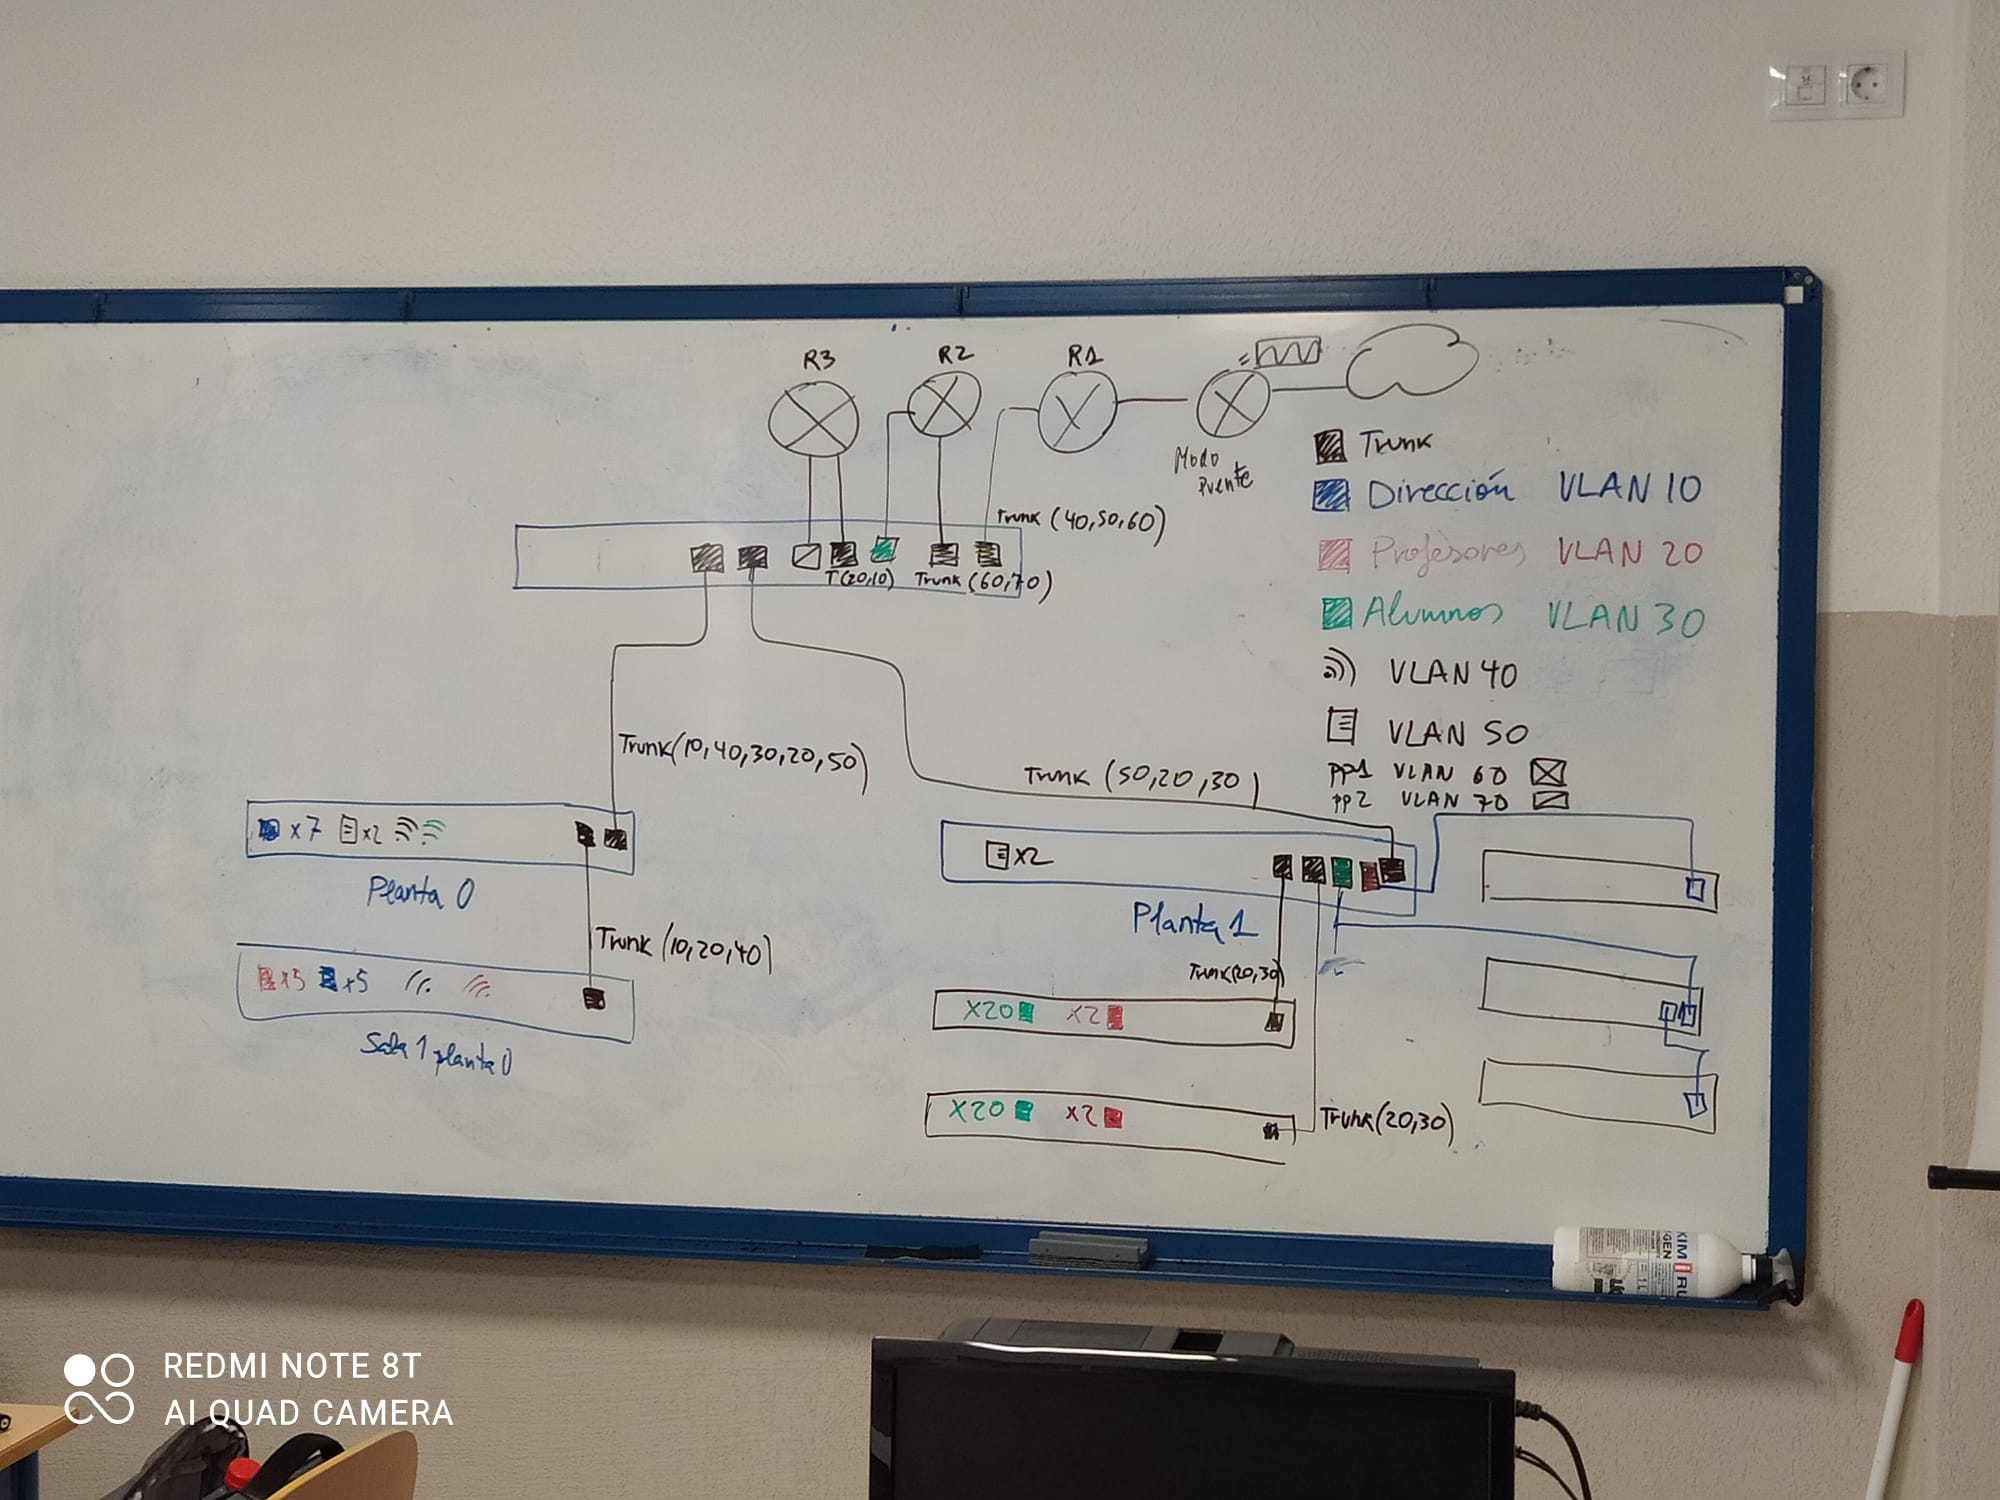 R3
R2
R1
Modo
Puente
Trunk (40,50,60)
T(20,10)
Trunk (60,70)
Trunk
Dirección VLAN 10
Profesores VLAN 20
Alumnos VLAN 30
VLAN 40
VLAN 50
PP1 VLAN 60
PP2 VLAN 70
Trunk(10,40,30,20,50)
Trunk (50,20,30)
x7 x2
Planta 0
Trunk (10,20,40)
x5 x5
Sala 1 planta 0
x2
Planta 1
Trunk(20,30)
x20 x2
x20 x2
Trunk(20,30)
KIM
GEN
1L
REDMI NOTE 8T
AI QUAD CAMERA